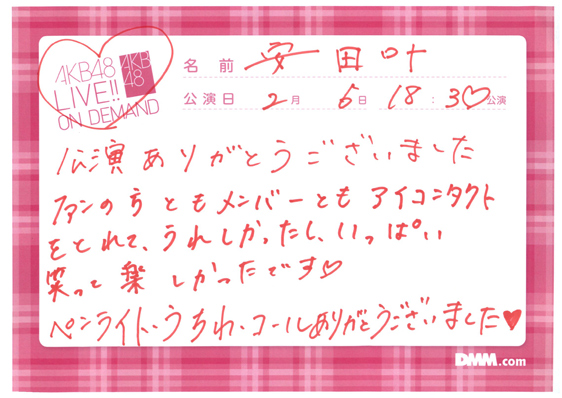 AKB48
LIVE!!
ON DEMAND
AKB
48
名前 安田叶
公演日 2月 6日 18:30公演
公演ありがとうございました
ファンの方ともメンバーともアイコンタクト
をとれて、うれしかったし、いっぱい
笑って楽しかったです♡
ペンライト・うちわ・コールありがとうございました♥
DMM.com